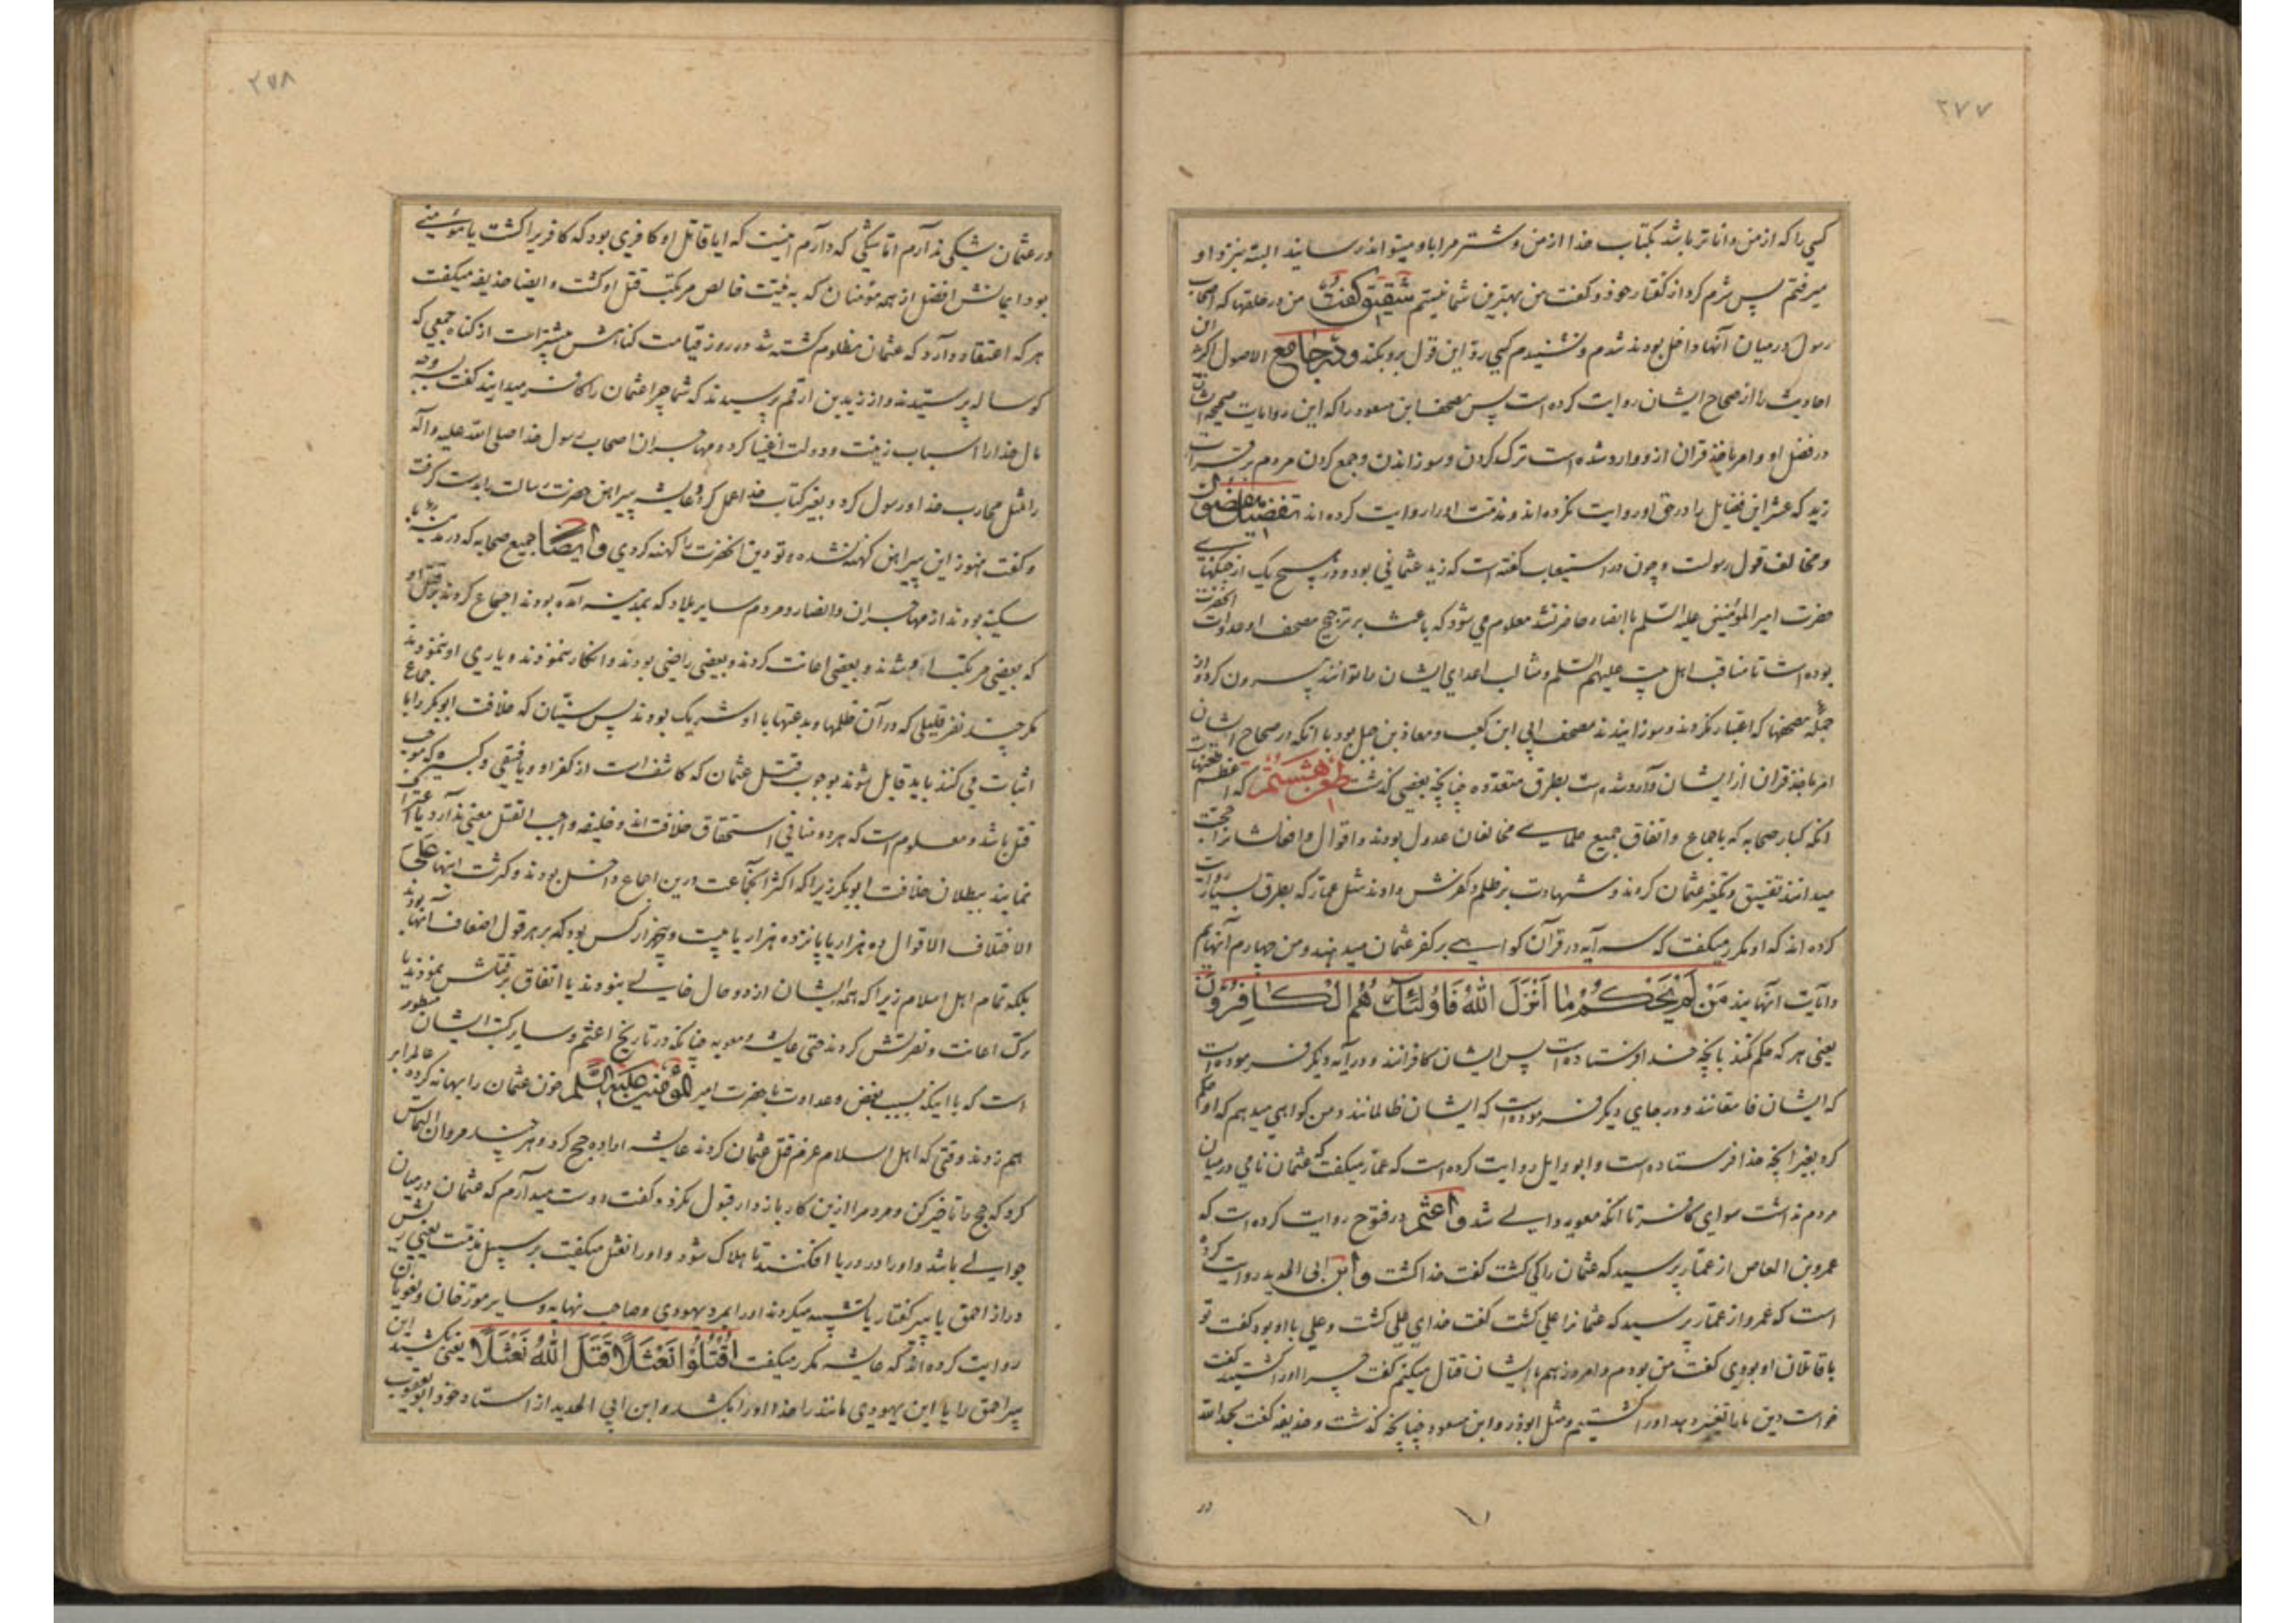 ۲۷۷
کسی را که از من داناتر باشد بکتاب خدا از من و شتر مرا باو میتواند رسانید البته بنزد او
میرفتم پس شرم کرد از گفتار خود و گفت من بهترین شما نیستم شقیق گفت من در حلقها که اصحاب
رسول در میان آنها داخل بودند شدم و نشنیدم کسی رد این قول برو بکند و در جامع الاصول اکثر این
احادیث را از صحاح ایشان روایت کرده است پس مصحف ابن مسعود را که این روایات صحیحه
در فضل او و امر باخذ قران ازو وارد شده است ترک کردن و سوزاندن و جمع کردن مردم بر قراءت
زید که عشر این فضایل را در حق او روایت نکرده اند و مذمت او را روایت کرده اند
و مخالف قول رسولست و چون در استیعاب گفته است که زید عثمانی بود و در هیچ یک از جنگهای
حضرت امیر المؤمنین علیه السلم با انصار حاضر نشد معلوم می شود که باعث بر ترجیح مصحف او عداوت آنحضرت
بوده است تا مناقب اهل بیت علیهم السلم و مثالب اعدای ایشان را توانند بیرون کرد و از
جمله مصحفها که اعتبار نکردند و سوزانیدند مصحف ابی ابن کعب و معاذ بن جبل بود با آنکه در صحاح ایشان
امر باخذ قران از ایشان وارد شده است بطرق متعدده چنانچه بعضی گذشت طعن هشتم که اعظم طعنهاست
آنکه کبار صحابه که باجماع و اتفاق جمیع علمای مخالفان عدول بودند و اقوال و افعالشانرا حجت
میدانند تفسیق و تکفیر عثمان کردند و شهادت بر ظلم و کفرش دادند مثل عمار که بطرق بسیار روایت
کرده اند که او مکرر میگفت که سه آیه در قرآن گواهی بر کفر عثمان میدهند و من چهارم آنهایم
و آیات آنها مَنْ لَمْ يَحْكُمْ بِمَا اَنْزَلَ اللّٰهُ فَاُولٰئِكَ هُمُ الْكَافِرُونَ
یعنی هر که حکم نکند بانچه خدا فرستاده است پس ایشان کافرانند و در آیه دیگر فرموده است
که ایشان فاسقانند و در جای دیگر فرموده است که ایشان ظالمانند و من گواهی میدهم که او حکم
کرد بغیر آنچه خدا فرستاده است و ابو وایل روایت کرده است که عمار میگفت که عثمان نامی در میان
مردم نداشت سوای کافر تا آنکه معویه والی شد و اعثم در فتوح روایت کرده است که
عمرو بن العاص از عمار پرسید که عثمان را کی کشت گفت خدا کشت و ابن ابی الحدید روایت کرده
است که عمرو از عمار پرسید که عثمانرا علی کشت گفت خدای علی کشت و علی با او بود گفت تو
با قاتلان او بودی گفت من بودم و امروز هم با ایشان قتال میکنم گفت چرا او را کشتید گفت
خواست دین ما را تغییر دهد او را کشتیم و مثل ابوذر و ابن مسعود چنانچه گذشت و حذیفه گفت بحمد الله
در
۲۷۸
در عثمان شکی ندارم اما شکی که دارم اینست که ایا قاتل او کافری بود که کافریرا کشت یا مؤمنی
بود ایمانش افضل از همه مؤمنان که به نیت خالص مرتکب قتل او گشت و ایضا حذیفه میگفت
هر که اعتقاد دارد که عثمان مظلوم کشته شد در روز قیامت گناهش بیشتر است از گناه جمعی که
گوساله پرستیدند و از زید بن ارقم پرسیدند که شما چرا عثمان را کافر میدانید گفت بسه وجه
مال خدا را اسباب زینت و دولت اغنیا کرد و مهاجران اصحاب رسول خدا صلی الله علیه و آله
را مثل محارب خدا و رسول کرد و بغیر کتاب خدا عمل کرد و عایشه پیراهن حضرت رسالت را بدست گرفت
و گفت هنوز این پیراهن کهنه نشده و تو دین آنحضرت را کهنه کردی و ایضا جمیع صحابه که در مدینه
سکینه بودند از مهاجران و انصار و مردم سایر بلاد که بمدینه آمده بودند اجتماع کردند بر قتل او
که بعضی مرتکب آن شدند و بعضی اعانت کردند و بعضی راضی بودند و انکار ننمودند و یاری او ننمودند
مگر چند نفر قلیلی که در آن ظلمها و بدعتها با او شریک بودند پس سنیان که خلافت ابوبکر را باجماع
اثبات می کنند باید قایل شوند بوجوب قتل عثمان که کاشف است از کفر او و یا فسقی و کبیره که موجب
قتل باشد و معلوم است که هر دو منافی استحقاق خلافت اند و خلیفه واجب القتل معنی ندارد یا اعتراف
نمایند ببطلان خلافت ابوبکر زیرا که اکثر آنجماعت درین اجماع داخل بودند و کثرت اینها علی
الاختلاف الاقوال ده هزار یا پانزده هزار یا بیست و پنجهزار کس بود که بر هر قول اضعاف آنها بودند
بلکه تمام اهل اسلام زیرا که همه ایشان از دو حال خالی نبودند یا اتفاق بر قتلش نمودند یا
ترک اعانت و نصرتش کردند حتی عایشه و معویه چنانکه در تاریخ اعثم و سایر کتب ایشان مسطور
است که با اینکه بسبب بغض و عداوت با حضرت امیر المؤمنین علیه السلم خون عثمان را بهانه کرده عالم را بر
هم زدند وقتی که اهل اسلام عزم قتل عثمان کردند عایشه اراده حج کرد و هر چند مروان التماس
کرد که حج را تاخیر کن و مردم را ازین کار باز دار قبول نکرد و گفت دوست میدارم که عثمان در میان
جوالی باشد و او را در دریا افکنند تا هلاک شود و او را نعثل میگفت بر سبیل مذمت یعنی ریش
دراز احمق یا پیر گفتار یا تشبیه میکردند او را بمرد یهودی و صاحب نهایه و سایر مورخان و لغویان
روایت کرده اند که عایشه مکرر میگفت اُقْتُلُوْا نَعْثَلًا قَتَلَ اللّٰهُ نَعْثَلًا یعنی بکشید این
پیر احمق را یا این یهودی مانند را خدا او را بکشد و ابن ابی الحدید از استاد خود ابو یعقوب